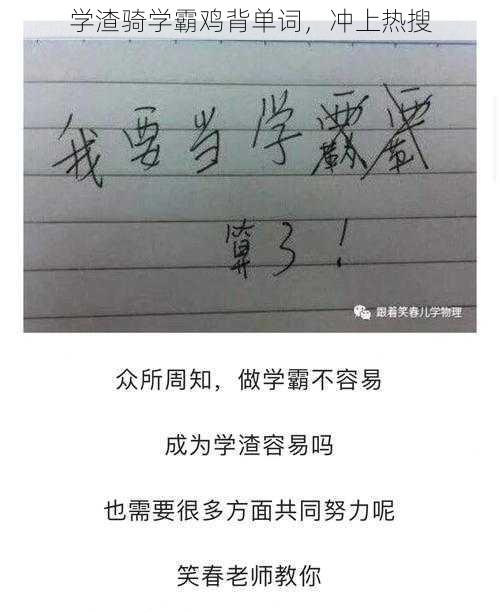 学渣骑学霸鸡背单词，冲上热搜
我要当学
算了！
跟着笑春儿学物理
众所周知，做学霸不容易
成为学渣容易吗
也需要很多方面共同努力呢
笑春老师教你